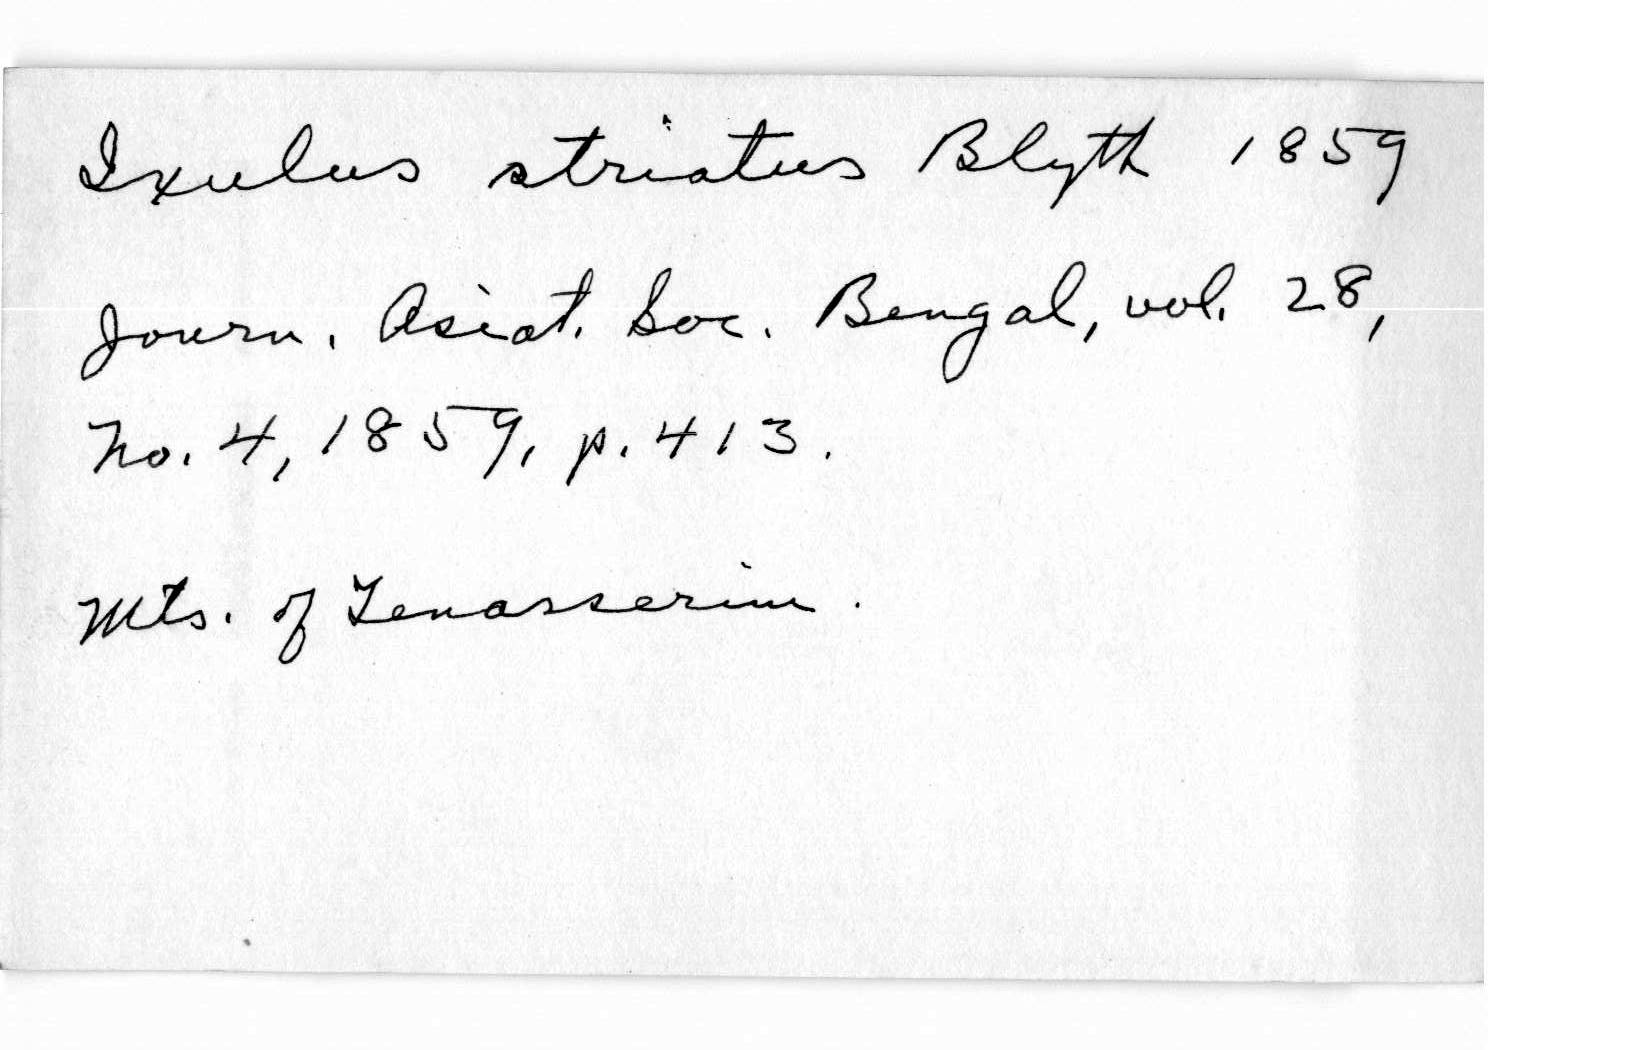 Ixulus striatus Blyth 1859
Journ. Asiat. Soc. Bengal, vol. 28,
No. 4, 1859, p. 413.
Mts. of Tenasserim.